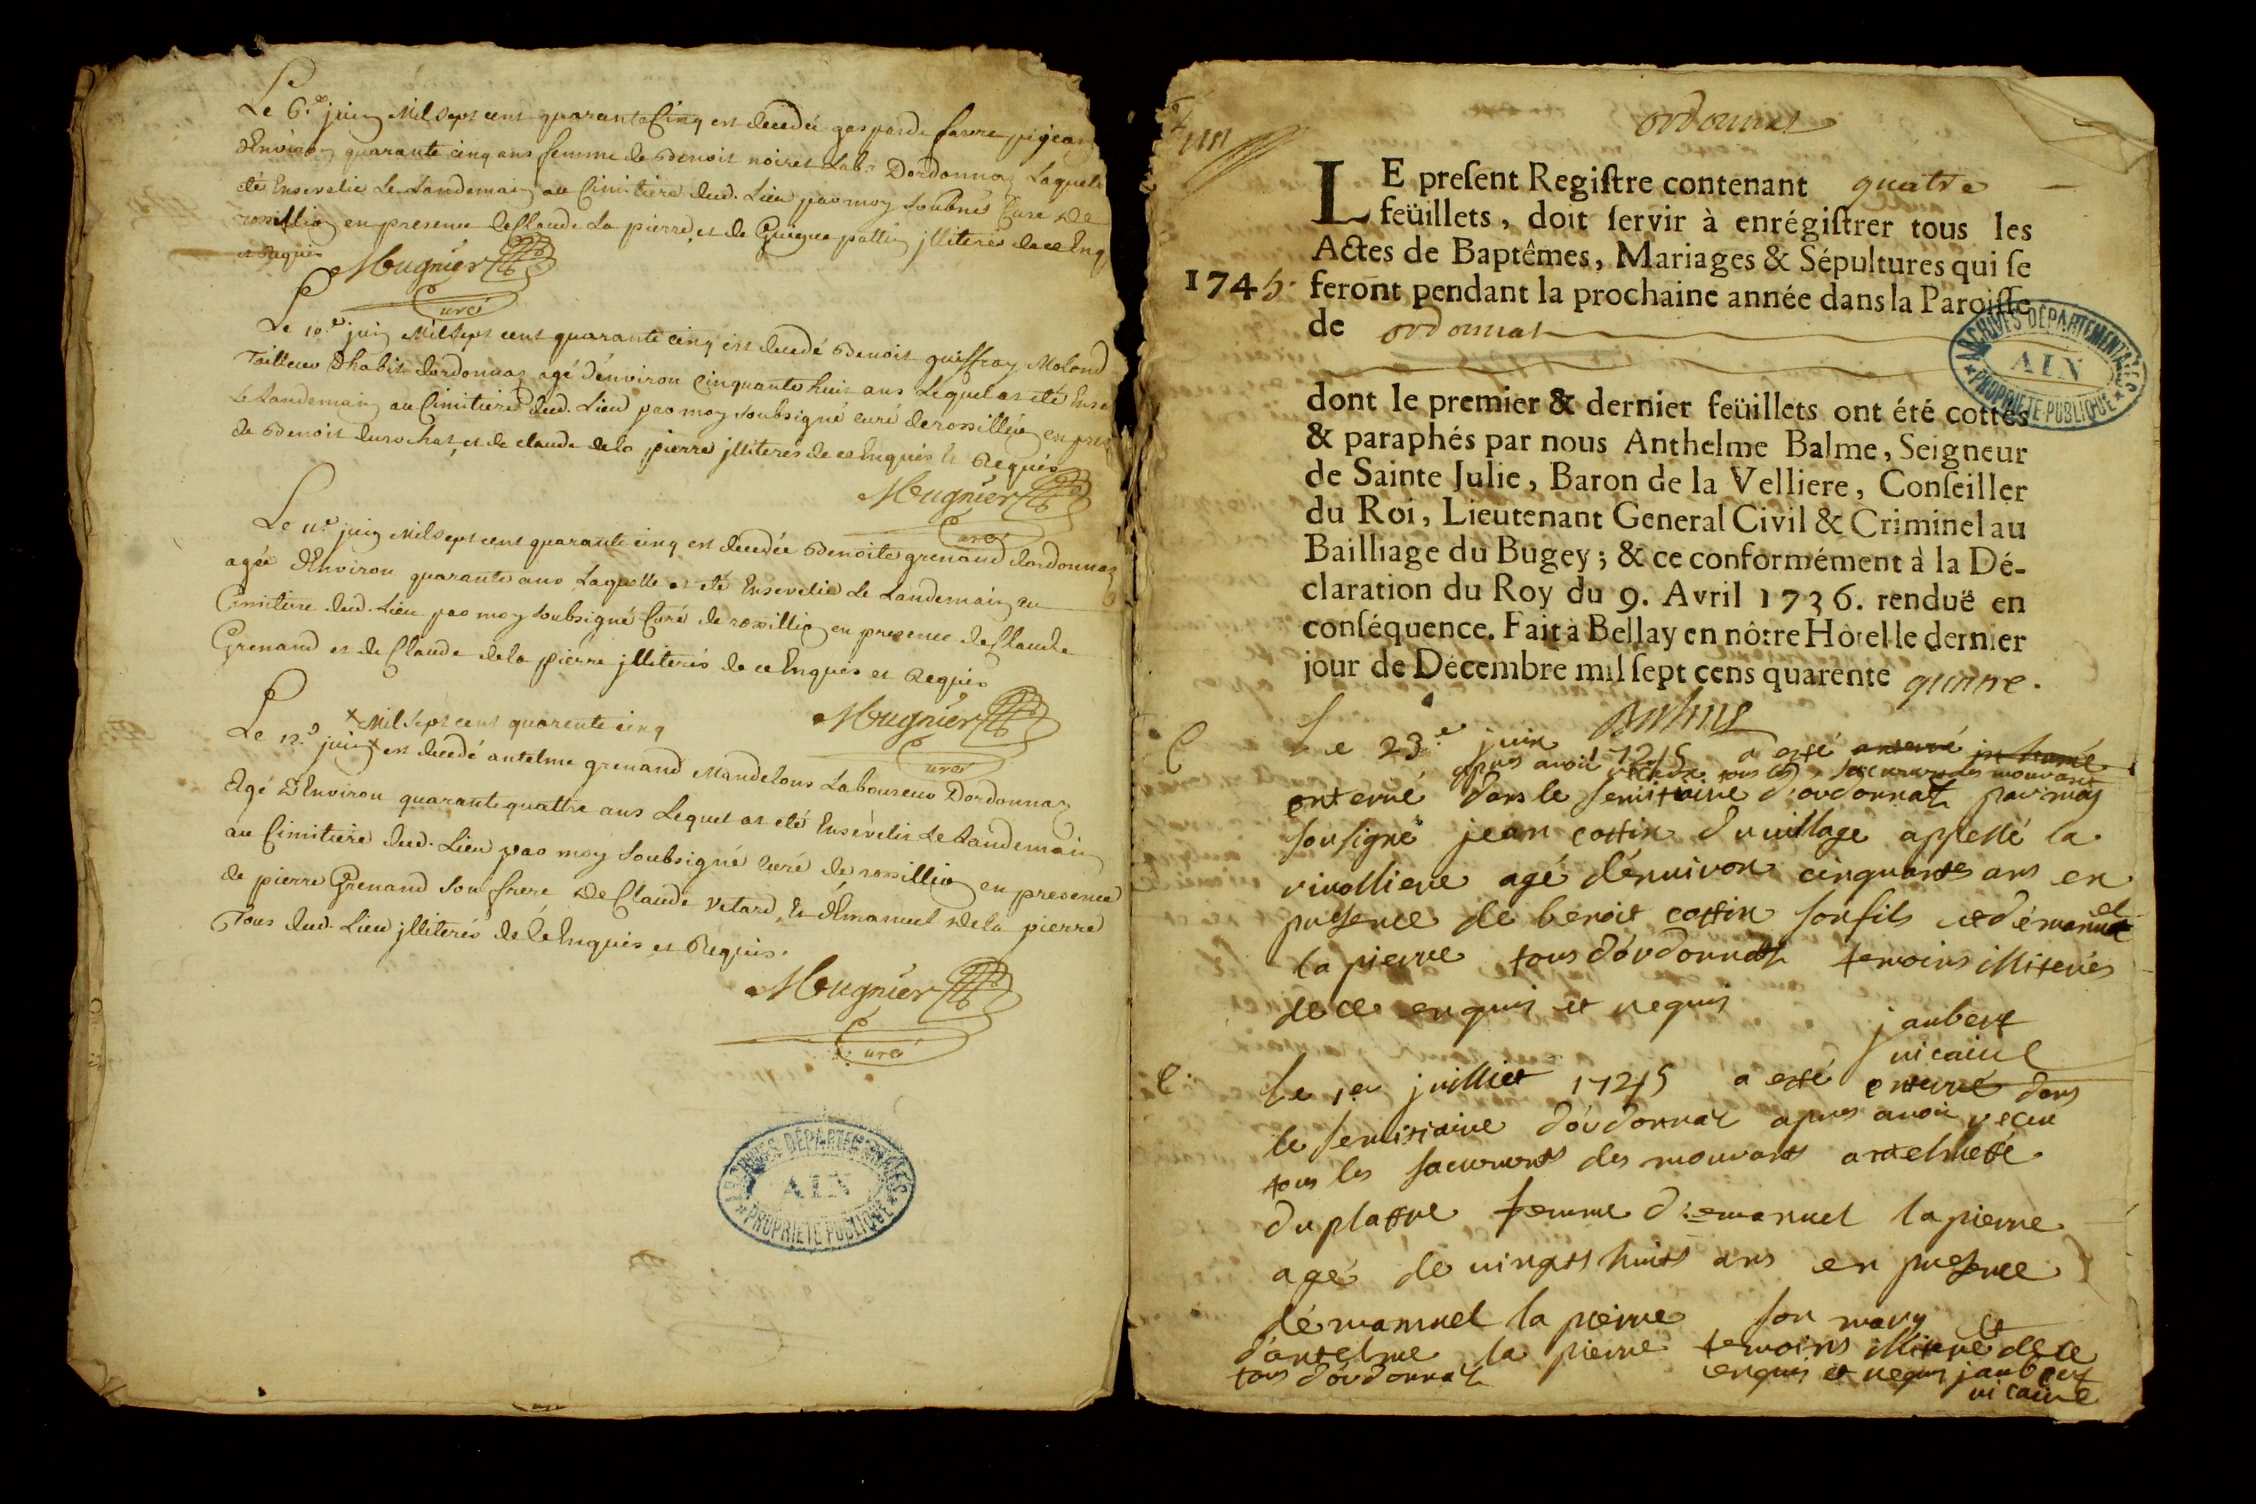 Le 6.e juin Mil Sept cent quarante Cinq est decedée gasparde favre pigeon
d'Environ quarante cinq ans femme de Benoit noiret Lab.r Dordonnaz Laquelle
été Ensevelie Le Landemain au Cimitiere dud. Lieu par moy soubsné Curé de
rossillion en presence de Claude La pierre, et de Guigue pattin jlliterés de ce Enq
et Requis Mugnier
Curé
Le 10.e juin Mil Sept cent quarante cinq est decedé Benoit guiffray Molond
Tailleur d'habit dordonnaz agé d'environ Cinquante huit ans Lequel at eté Ense
Le Landemain au Cimitiere dud. Lieu par moy soubsigné curé de rossillion en pres
de Benoit durochat, et de claude dela pierre jlliteres de ce Enquis et Requis
Mugnier
Curé
Le 11.e juin Mil Sept cent quarante cinq est decedée Benoite grenaud dordonnaz
agée d'Environ quarante ans Laquelle at eté Ensevelie Le Landemain au
Cimitiere dud. Lieu par moy soubsigné Curé de rossillion en presence de Claude
Grenaud et de Claude dela pierre jlliterés de ce Enquis et Requis
Mugnier
Curé
Mil Sept cent quarente cinq
Le 12.e juin est decedé antelme grenaud Mandelons Laboureur Dordonnaz
Agé d'Environ quarante quattre ans Lequel at eté Ensévelir Le Landemain
au Cimitiere dud. Lieu par moy soubsigné curé de rossillion en presence
de pierre Grenaud Son frere De Claude Vetard, Et d'Emanuel dela pierre
Tous dud. Lieu jlliterés de Ce Enquis et Requis.
Mugnier
Curé
ARCHIVES DÉPARTEMENTALES
AIN
PROPRIÉTÉ PUBLIQUE
ordonnat
LE present Registre contenant quatre
feüillets, doit servir à enrégistrer tous les
Actes de Baptêmes, Mariages & Sépultures qui se
1745. feront pendant la prochaine année dans la Paroisse
de ordonnat
ARCHIVES DÉPARTEMENTALES
AIN
PROPRIÉTÉ PUBLIQUE
dont le premier & dernier feüillets ont été cottés
& paraphés par nous Anthelme Balme, Seigneur
de Sainte Julie, Baron de la Velliere, Conseiller
du Roi, Lieutenant General Civil & Criminel au
Bailliage du Bugey; & ce conformément à la Dé-
claration du Roy du 9. Avril 1736. renduë en
conséquence. Fait à Bellay en nôtre Hôtel le dernier
jour de Décembre mil sept cens quarente quatre.
Balme
Le 23.e juin 1745 a esté enterré inhumé
apres avoir receu tous les sacurements mouvants
enterré dans le semitaire d'ordonnat par moy
sousigné jean cottin du village appellé la
rivolliere agé d'enuiron cinquante ans en
presence de benoit cottin son fils et d'emanuel
la pierre tous d'ordonnat temoins illiterés
de ce enquis et requis
jaubert
vicaire
Le 1er juilliet 1745 a esté enterré dans
le semitiaire d'ordonnat apres avoir receu
tous les sacurents des mourants antelmette
duplattre femme d'emanuel lapierre
agé de vingts huits ans en presence
d'émanuel la pierre son mary et
d'antelme la pierre temoins illiteré de ce
tous d'ordonnat enquis et requis jaubert
vicaire